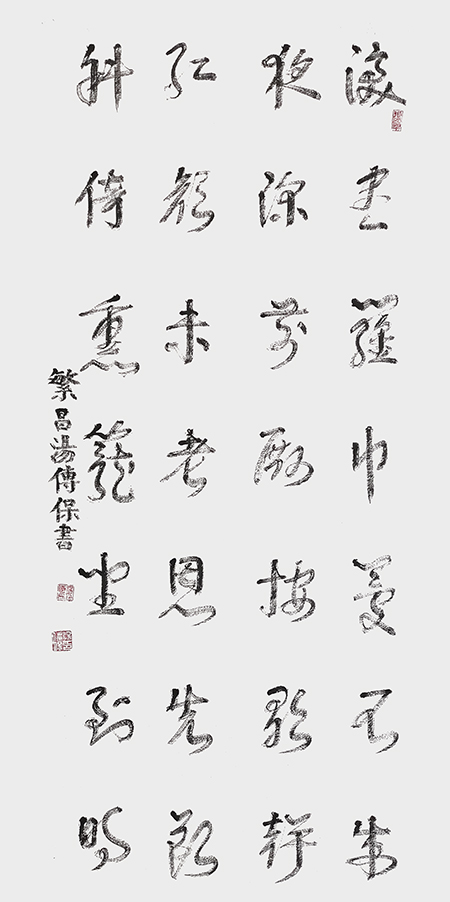 淚盡羅巾夢不成
夜深前殿按歌聲
紅顏未老恩先斷
斜倚熏籠坐到明
繁昌湯傳保書